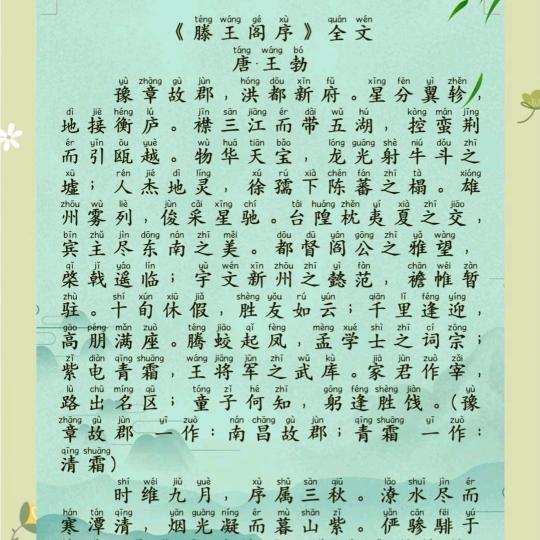 téng wáng gé xù quán wén
《滕王阁序》全文
táng wáng bó
唐·王勃
yù zhāng gù jùn hóng dōu xīn fǔ xīng fēn yì zhěn
豫章故郡，洪都新府。星分翼轸，
dì jiē héng lú jīn sān jiāng ér dài wǔ hú kòng mán jīng
地接衡庐。襟三江而带五湖，控蛮荆
ér yǐn ōu yuè wù huá tiān bǎo lóng guāng shè niú dǒu zhī
而引瓯越。物华天宝，龙光射牛斗之
xū rén jié dì líng xú rú xià chén fān zhī tà xióng
墟；人杰地灵，徐孺下陈蕃之榻。雄
zhōu wù liè jùn cǎi xīng chí tái huáng zhěn yí xià zhī jiāo
州雾列，俊采星驰。台隍枕夷夏之交，
bīn zhǔ jǐn dōng nán zhī měi dōu dū yán gōng zhī yǎ wàng
宾主尽东南之美。都督阎公之雅望，
qǐ jǐ yáo lín yǔ wén xīn zhōu zhī yì fàn chān wéi zàn
棨戟遥临；宇文新州之懿范，襜帷暂
zhù shí xún xiū jiǎ shèng yǒu rú yún qiān lǐ féng yíng
驻。十旬休假，胜友如云；千里逢迎，
gāo péng mǎn zuò téng jiāo qǐ fèng mèng xué shì zhī cí zōng
高朋满座。腾蛟起凤，孟学士之词宗；
zǐ diàn qīng shuāng wáng jiāng jūn zhī wǔ kù jiā jūn zuò zǎi
紫电青霜，王将军之武库。家君作宰，
lù chū míng qū tóng zǐ hé zhī gōng féng shèng jiàn yù
路出名区；童子何知，躬逢胜饯。(豫
zhāng gù jùn yī zuò nán chāng gù jùn qīng shuāng yī zuò
章故郡 一作：南昌故郡；青霜 一作：
qīng shuāng
清霜)
shí wéi jiǔ yuè xù shǔ sān qiū lǎo shuǐ jǐn ér
时维九月，序属三秋。潦水尽而
hán tán qīng yān guāng níng ér mù shān zǐ yǎn cān fēi yú
寒潭清，烟光凝而暮山紫。俨骖騑于